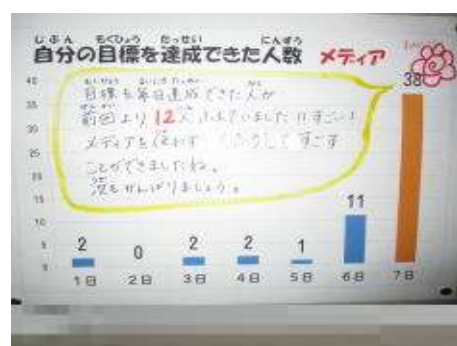 じぶん もくひょう たっせい にんずう
自分の目標を達成できた人数 メディア
38
目標を毎日達成できた人が
前回より12人ふえていました!!すごい!
メディアを使わず してすごす
ことができましたね。
次もがんばりましょう。
40
35
30
25
20
15
10
5
0
2
0
2
2
1
11
1日 2日 3日 4日 5日 6日 7日